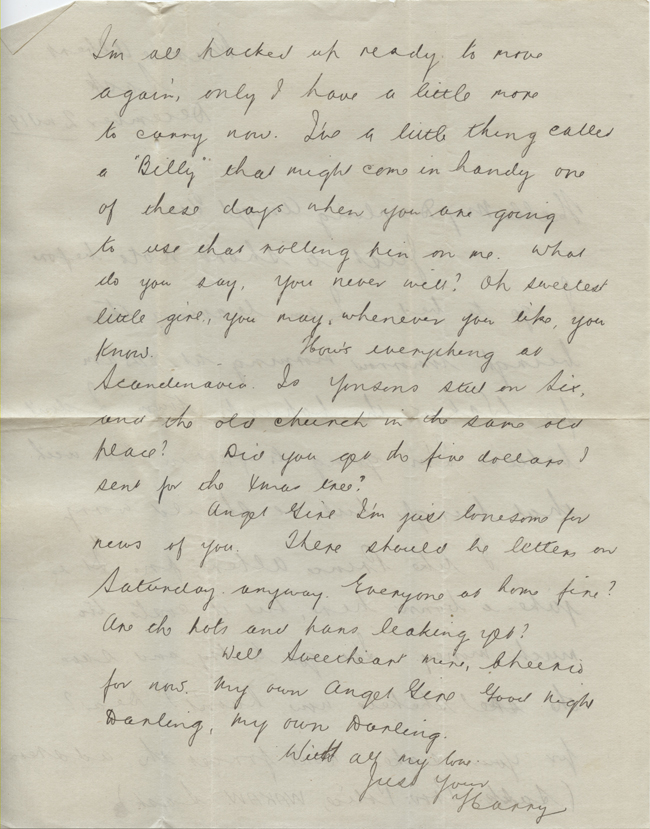 I'm all packed up ready to move
again, only I have a little more
to carry now. I've a little thing called
a "Billy" that might come in handy one
of these days when you are going
to use that rolling pin on me. What
do you say, you never will? Oh sweetest
little girl, you may, whenever you like, you
know. How's everything at
Scandinavia. Is Yonsons still on Six,
and the old church in the same old
place? Did you get the five dollars I
sent for the Xmas tree?
Angel Girl I'm just lonesome for
news of you. There should be letters on
Saturday anyway. Everyone at home fine?
Are the pots and pans leaking yet?
Well Sweetheart mine, Cheerio
for now. My own Angel Girl Good Night
Darling, my own Darling.
With all my love.
Just Your
Harry